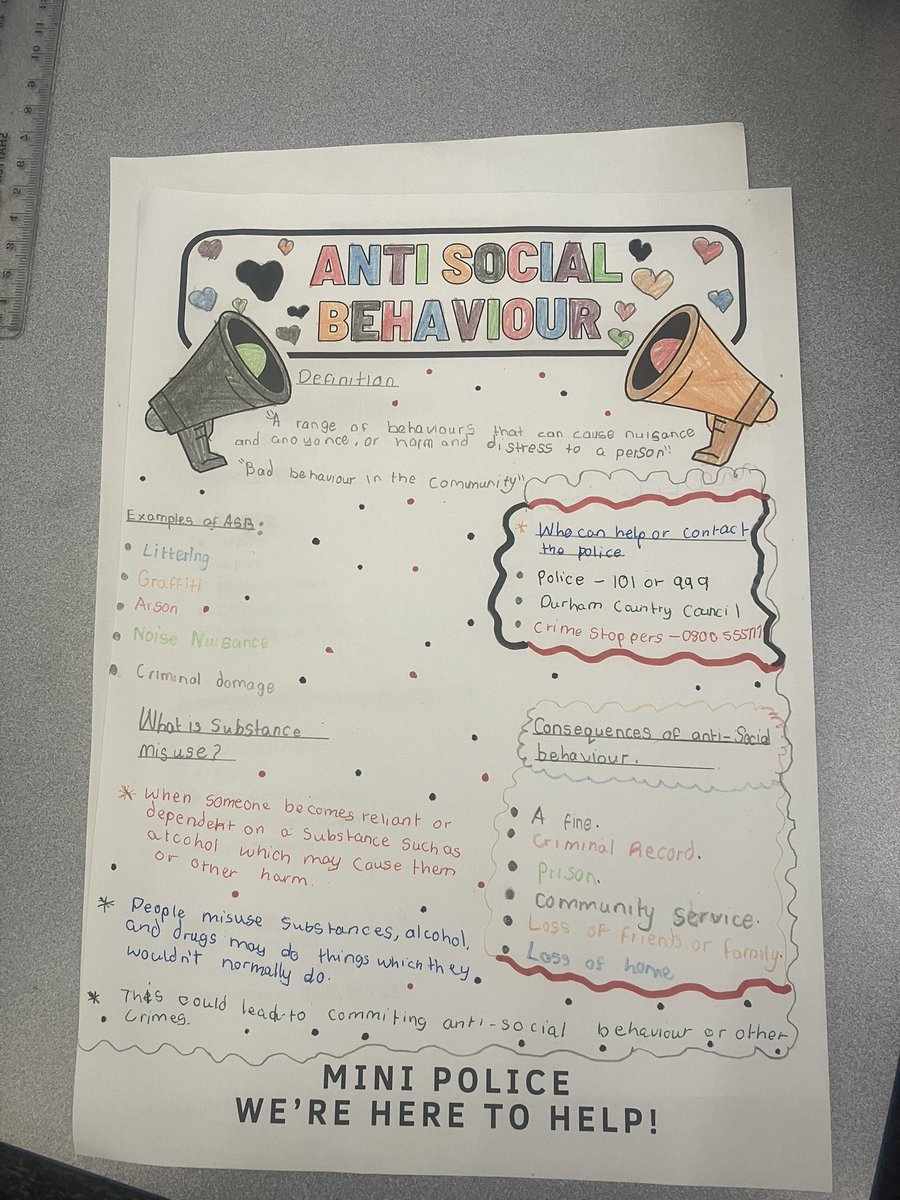 ANTI SOCIAL
BEHAVIOUR
Definition
"A range of behaviours that can cause nuisance
and anoyonce, or harm and distress to a person"
"Bad behaviour in the Community"
Examples of ASB:
Littering
Graffiti
Arson
Noise Nuisance
Criminal domage
What is Substance
misuse?
When someone becomes reliant or
dependent on a Substance such as
alcohol which may cause them
or other harm.
People misuse substances, alcohol,
and drugs may do things which they
wouldn't normally do.
This could lead to commiting anti-social behaviour or other
crimes.
Who can help or contact
the police
Police - 101 or 999
Durham Country Council
Crime Stoppers - 0800 555111
Consequences of anti-Social
behaviour.
A fine.
Criminal Record.
Prison.
Community service.
Loss of friends or family.
Loss of home
MINI POLICE
WE'RE HERE TO HELP!